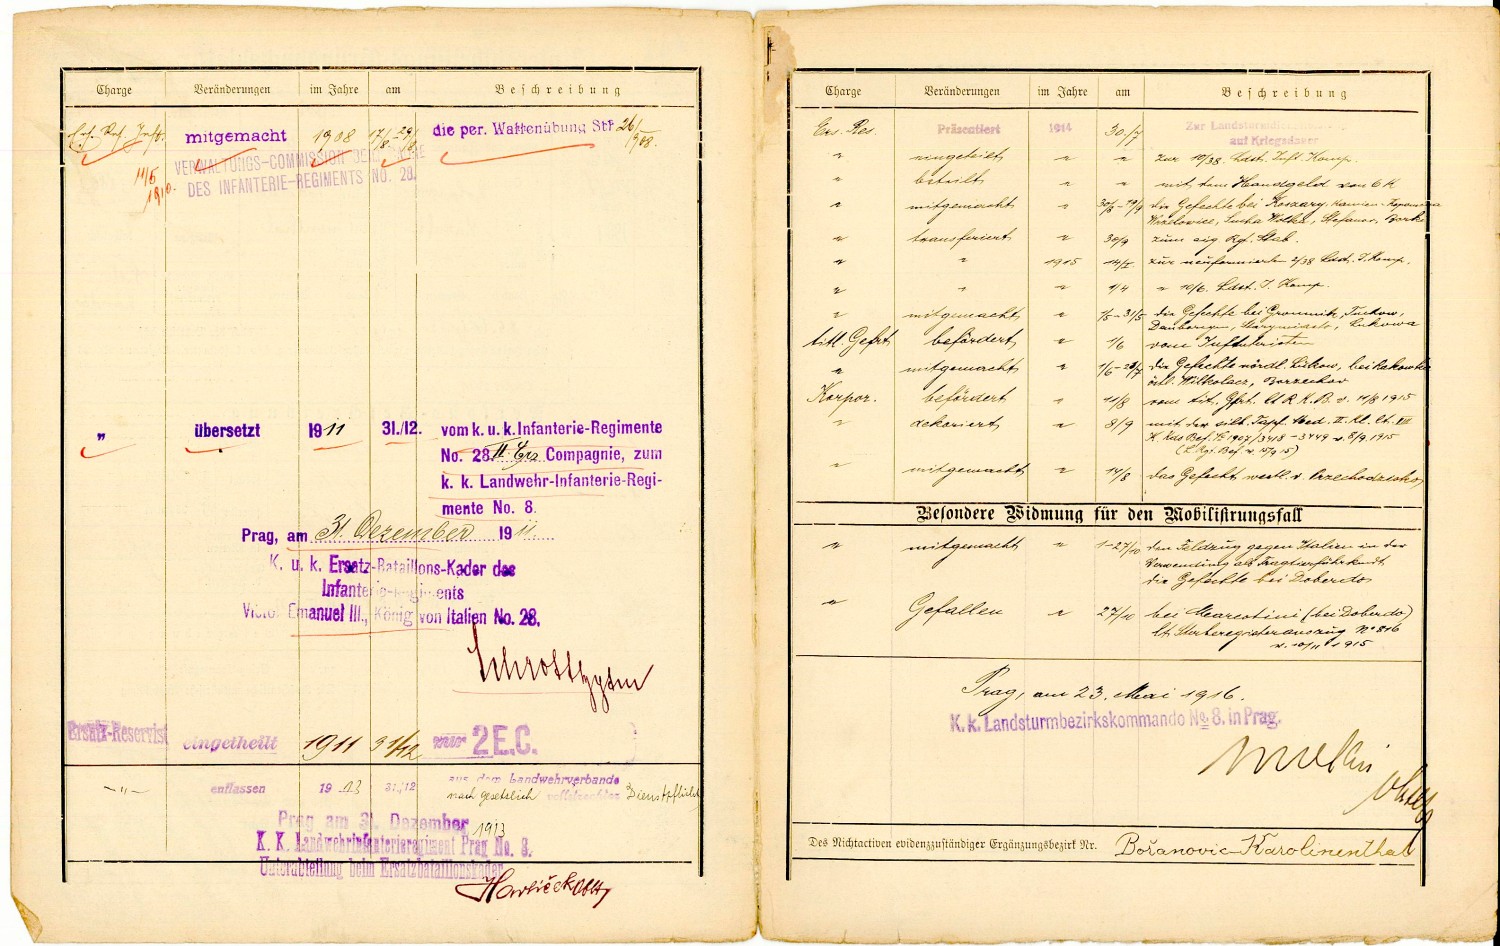 Charge Veränderungen im Jahre am Beschreibung
Ers. Res. Inft. mitgemacht 1908 17/8-29/8 die per. Waffenübung Stf 26/ 908.
VERWALTUNGS-COMMISSION
11/5 1910. DES INFANTERIE-REGIMENTS NO. 28.
" übersetzt 1911 31./12. vom k. u. k. Infanterie-Regimente
No. 28. II Ers Compagnie, zum
k. k. Landwehr-Infanterie-Regi-
mente No. 8.
Prag, am 31. Dezember 1911
K. u. k. Ersatz-Bataillons-Kader des
Infanterie-Regiments
Victor Emanuel III., König von Italien No. 28.
Ersatz-Reservist eingetheilt 1911 31/12 zur 2 E.C.
-"- entlassen 1913 31./12 aus dem Landwehrverbande
nach gesetzlich vollstreckter Dienstpflicht
Prag am 31. Dezember 1913
K. K. Landwehrinfanterieregiment Prag No. 8.
Unterabteilung beim Ersatzbataillonskader
Havlíček Oblt
Charge Veränderungen im Jahre am Beschreibung
Ers. Res. Präsentiert 1914 30/7 Zur Landsturmdienstleistung
auf Kriegsdauer
" eingeteilt " " zur 10/38. Ldst. Inft. Komp.
" beteilt " " mit dem Handgeld von 6 K
" mitgemacht " 30/8-29/9 die Gefechte bei Koszary, Kamien-
Lucha Wolka, Stefanow, Borki
" transferiert " 30/9 zum eig Rgt. Stab.
" " 1915 14/I zur neuformierten 2/38 Ldst. I. Komp.
" " " 1/4 " 10/6. Ldst. I. Komp.
" mitgemacht " 1/5-31/5 die Gefechte bei Gromnik, Tuchow,
titl. Gefrt befördert " 1/6 vom Infanteristen
" mitgemacht " 1/6- die Gefechte nördl. Lukow, bei
östl. Wilkolaz, Borzechow
Korpor. befördert " 11/8 vom tit. Gfrt. lt R. K. B. v. 11/8 1915
" dekoriert " 8/9 mit der silb. Tapf. Med. II. Kl. lt. VII
K. Kus Bef. No 1907/3418-3449 v. 8/9. 1915
(L. Rgt. Bef. v. 15/9 15)
" mitgemacht " 14/8 das Gefecht westl. v. Przechodzisko
Besondere Widmung für den Mobilisirungsfall
" mitgemacht " 1-27/10 den Feldzug gegen Italien in der
Verwendung als Tragtierführer u.
die Gefechte bei Doberdo
" Gefallen " 27/10 bei Marcotini (bei Doberdo)
lt. Sterberegisterauszug No 816
v. 10/11 1915
Prag, am 23. Mai 1916.
K. k. Landsturmbezirkskommando No 8. in Prag.
Des Nichtactiven evidenzzuständiger Ergänzungsbezirk Nr. Božanovic-Karolinenthal